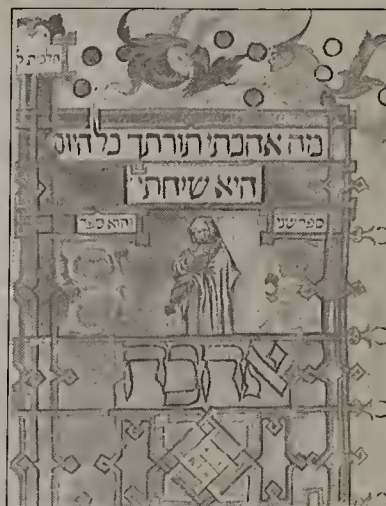 מה אהבתי תורתך כל היום
היא שיחתי
ספר שני
והוא ספר
אהבה